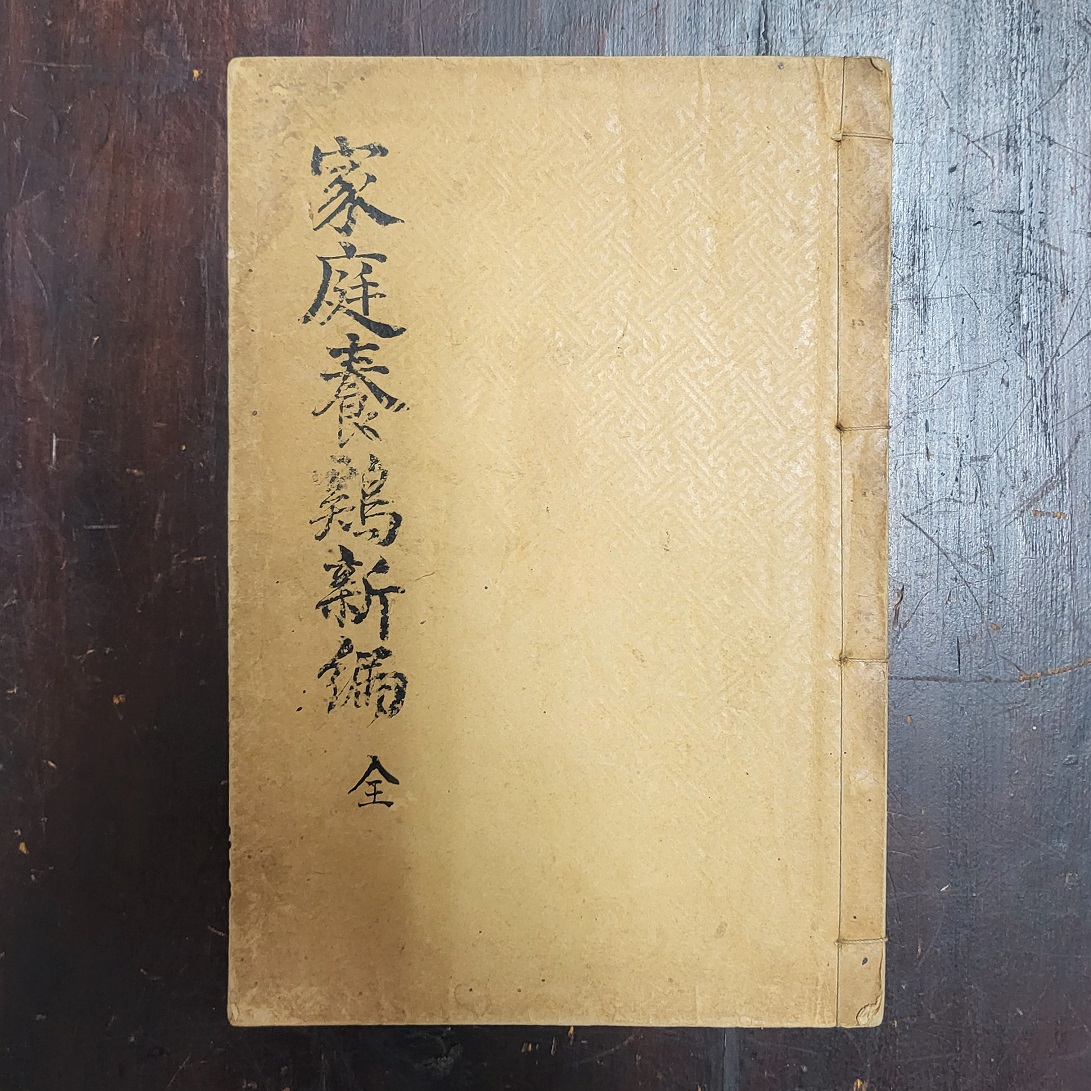 家庭養鷄新編 全